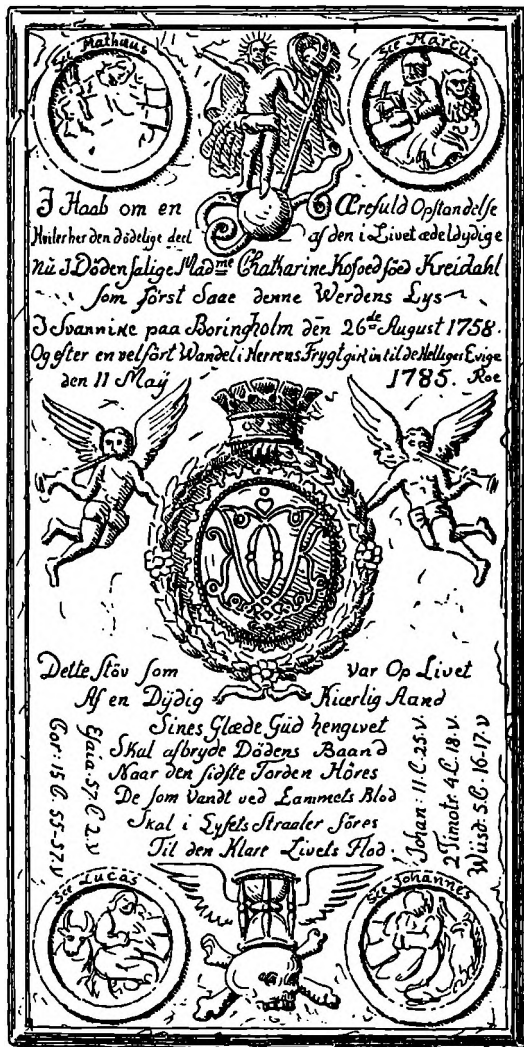 Ste Mathæus
Ste Marcus
I Haab om en Ærefuld Opstandelse
Hviler her den dödelige deel af den i Livet ædeldydige
nu I Döden salige Madme Chatharine Kofoed föed Kreidahl
som först Saae denne Werdens Lys
I Svannike paa Boringholm den 26de August 1758.
Og efter en velfört Wandel i Herrens Frygt gik in til de Helliges Evige
den 11 Maÿ 1785. Roe
Dette Stöv som var Op Livet
Af en Dÿdig Kierlig Aand
Sines Glæde Gud hengivet
Skal afbryde Dödens Baand
Naar den sidste Torden Höres
De som Vandt ved Lammets Blod
Skal i Lysets Straaler föres
Til den Klare Livets Flod.
Esaia. 57. C. 2. v
Cor: 15 C. 55-57. v
Johan: 11. C. 25. v.
2 Timotr. 4 C. 18. v.
Wiisd. 5. C. 16-17. v
Ste Lucas
Ste Johannes